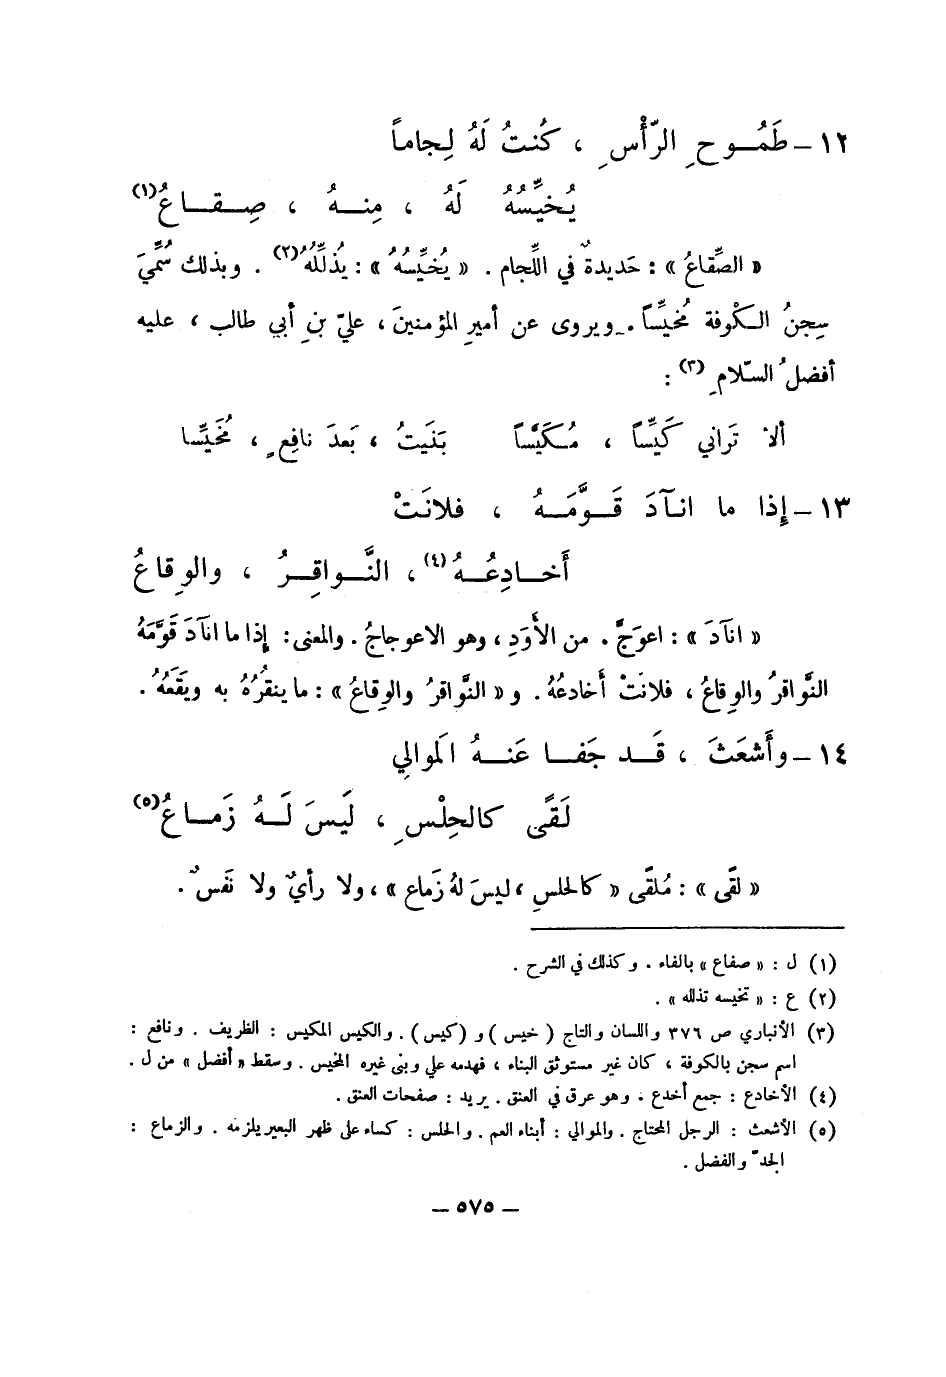 ١٢ – طَمُوحِ الرّأْسِ ، كُنتُ لَهُ لِجاماً
يُخَيِّسُهُ لَهُ ، مِنهُ ، صِقاعُ(١)
« الصِّقاعُ » : حَديدةٌ في اللِّجام . « يُخَيِّسُهُ » : يُذلِّلُهُ(٢) . وبذلك سُمِّيَ
سِجنُ الكُوفة مُخيِّساً . ويروى عن أميرِ المؤمنينَ ، عليّ بنِ أبي طالب ، عليه
أفضلُ السّلامِ (٣) :
ألا تَراني كَيِّساً ، مُكَيَّساً بَنَيتُ ، بَعدَ نافِعٍ ، مُخَيِّسا
١٣ – إِذا ما انآدَ قَوَّمَهُ ، فلانَتْ
أَخادِعُهُ(٤) ، النَّواقِرُ ، والوِقاعُ
« انآدَ » : اعوَجَّ . من الأَوَدِ ، وهو الاعوجاجُ . والمعنى : إِذا ما انآدَ قَوَّمَهُ
النَّواقرُ والوِقاعُ ، فلانَتْ أَخادعُهُ . و « النَّواقرُ والوِقاعُ » : ما ينقُرُهُ به ويَقَعُهُ .
١٤ – وأَشعَثَ ، قَد جَفا عَنهُ المَوالِي
لَقًى كالحِلْسِ ، لَيسَ لَهُ زَماعُ(٥)
« لقًى » : مُلقًى « كالحلسِ ، ليسَ لهُ زَماع » ، ولا رأيٌ ولا نَفَسٌ .
(١) ل : « صفاع » بالفاء . وكذلك في الشرح .
(٢) ع : « تخيسه تذلله » .
(٣) الأنباري ص ٣٧٦ واللسان والتاج ( خيس ) و ( كيس ) . والكيس المكيس : الظريف . ونافع :
اسم سجن بالكوفة ، كان غير مستوثق البناء ، فهدمه علي وبنى غيره المخيس . وسقط « أفضل » من ل .
(٤) الأخادع : جمع أخدع . وهو عرق في العنق . يريد : صفحات العنق .
(٥) الأشعث : الرجل المحتاج . والموالي : أبناء العم . والحلس : كساء على ظهر البعير يلزمه . والزماع :
الجدّ والفضل .
– ٥٧٥ –